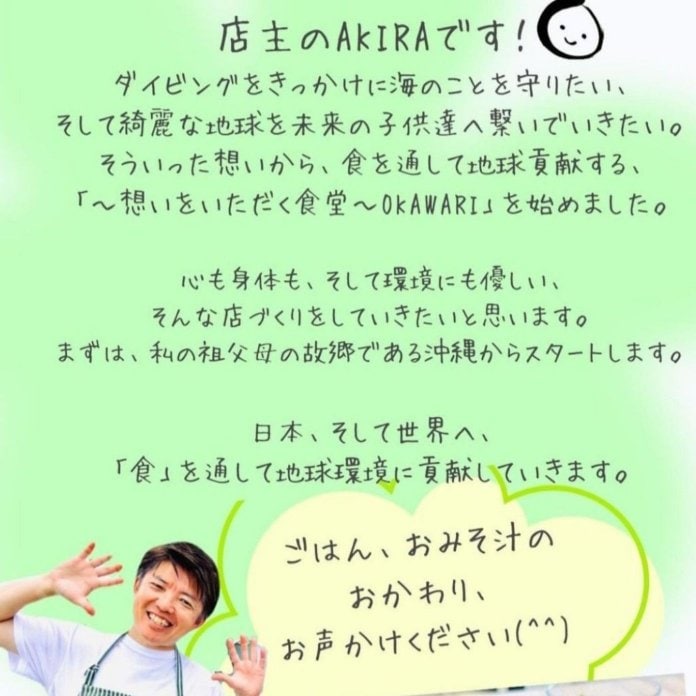 店主のAKIRAです!
ダイビングをきっかけに海のことを守りたい、
そして綺麗な地球を未来の子供達へ繋いでいきたい。
そういった想いから、食を通して地球貢献する、
「～想いをいただく食堂～OKAWARI」を始めました。
心も身体も、そして環境にも優しい、
そんな店づくりをしていきたいと思います。
まずは、私の祖父母の故郷である沖縄からスタートします。
日本、そして世界へ、
「食」を通して地球環境に貢献していきます。
ごはん、おみそ汁の
おかわり、
お声かけください(^^)